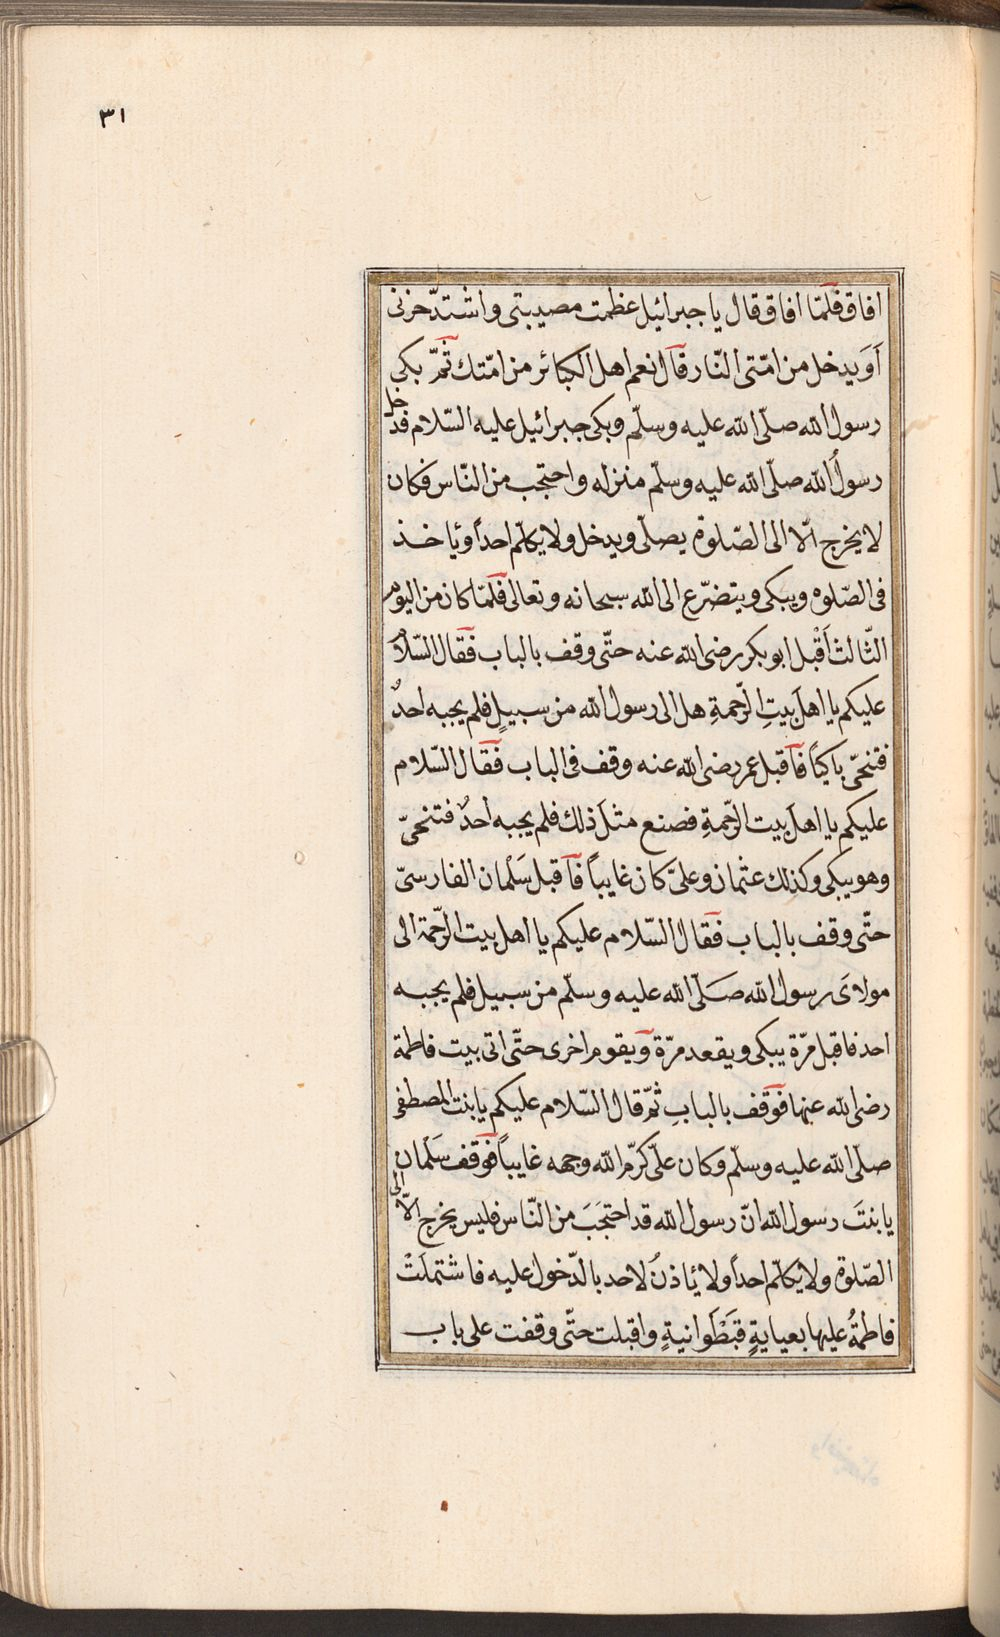 ٣١
افاق فلمّا افاق قال يا جبرائيل عظمت مصيبتى واشتدّ حزنى
أوَيدخل من امّتى النّار قال نعم اهل الكبائر من امّتك ثمّ بكى
رسول الله صلّى الله عليه وسلّم وبكى جبرائيل عليه السّلام فدخل
رسولُ الله صلّى الله عليه وسلّم منزله واحتجب من النّاس فكان
لا يخرج الّا الى الصّلوة يصلّى ويدخل ولا يكلّم احداً وياخذ
فى الصّلوه ويبكى ويتضرّع الى الله سبحانه وتعالى فلمّا كان من اليوم
الثّالث أقْبل ابو بكر رضى الله عنه حتّى وقف بالباب فقال السّلام
عليكم يا اهلَ بيتِ الرّحمةِ هل الى رسول الله من سبيلٍ فلم يجبه احدٌ
فتنحّى باكياً فاقبل عمر رضى الله عنه وقف فى الباب فقال السّلام
عليكم يا اهلَ بيت الرّحمةِ فصنع مثلَ ذلك فلم يجبه أحدٌ فتنحىّ
وهو يبكى وكذلك عثمان وعلىّ كان غايباً فاقبل سَلْمان الفارسىّ
حتّى وقف بالباب فقال السّلام عليكم يا اهل بيت الرّحمة الى
مولاىَ رسول الله صَلّى الله عليه وسلّم من سبيل فلم يجبه
احد فاقبل مرّة يبكى ويقعد مرّة ويقوم اخرى حتّى اتى بيت فاطمة
رضى الله عنها فوقف بالبابِ ثمّ قال السّلام عليكم يا بنت المصطفى
صلّى الله عليه وسلّم وكان علىّ كرّم الله وجهه غايباً فوقف سَلمان
يا بنتَ رسول الله انّ رسول الله قد احتجَبَ من النّاس فليس يخرج الّا الى
الصّلوة ولا يكلّم احداً ولا ياذنُ لاحد بالدّخول عليه فاشتملَتْ
فاطمةُ عليها بعبايةٍ قبَطْوانيةٍ واقبلت حتّى وقفت على باب